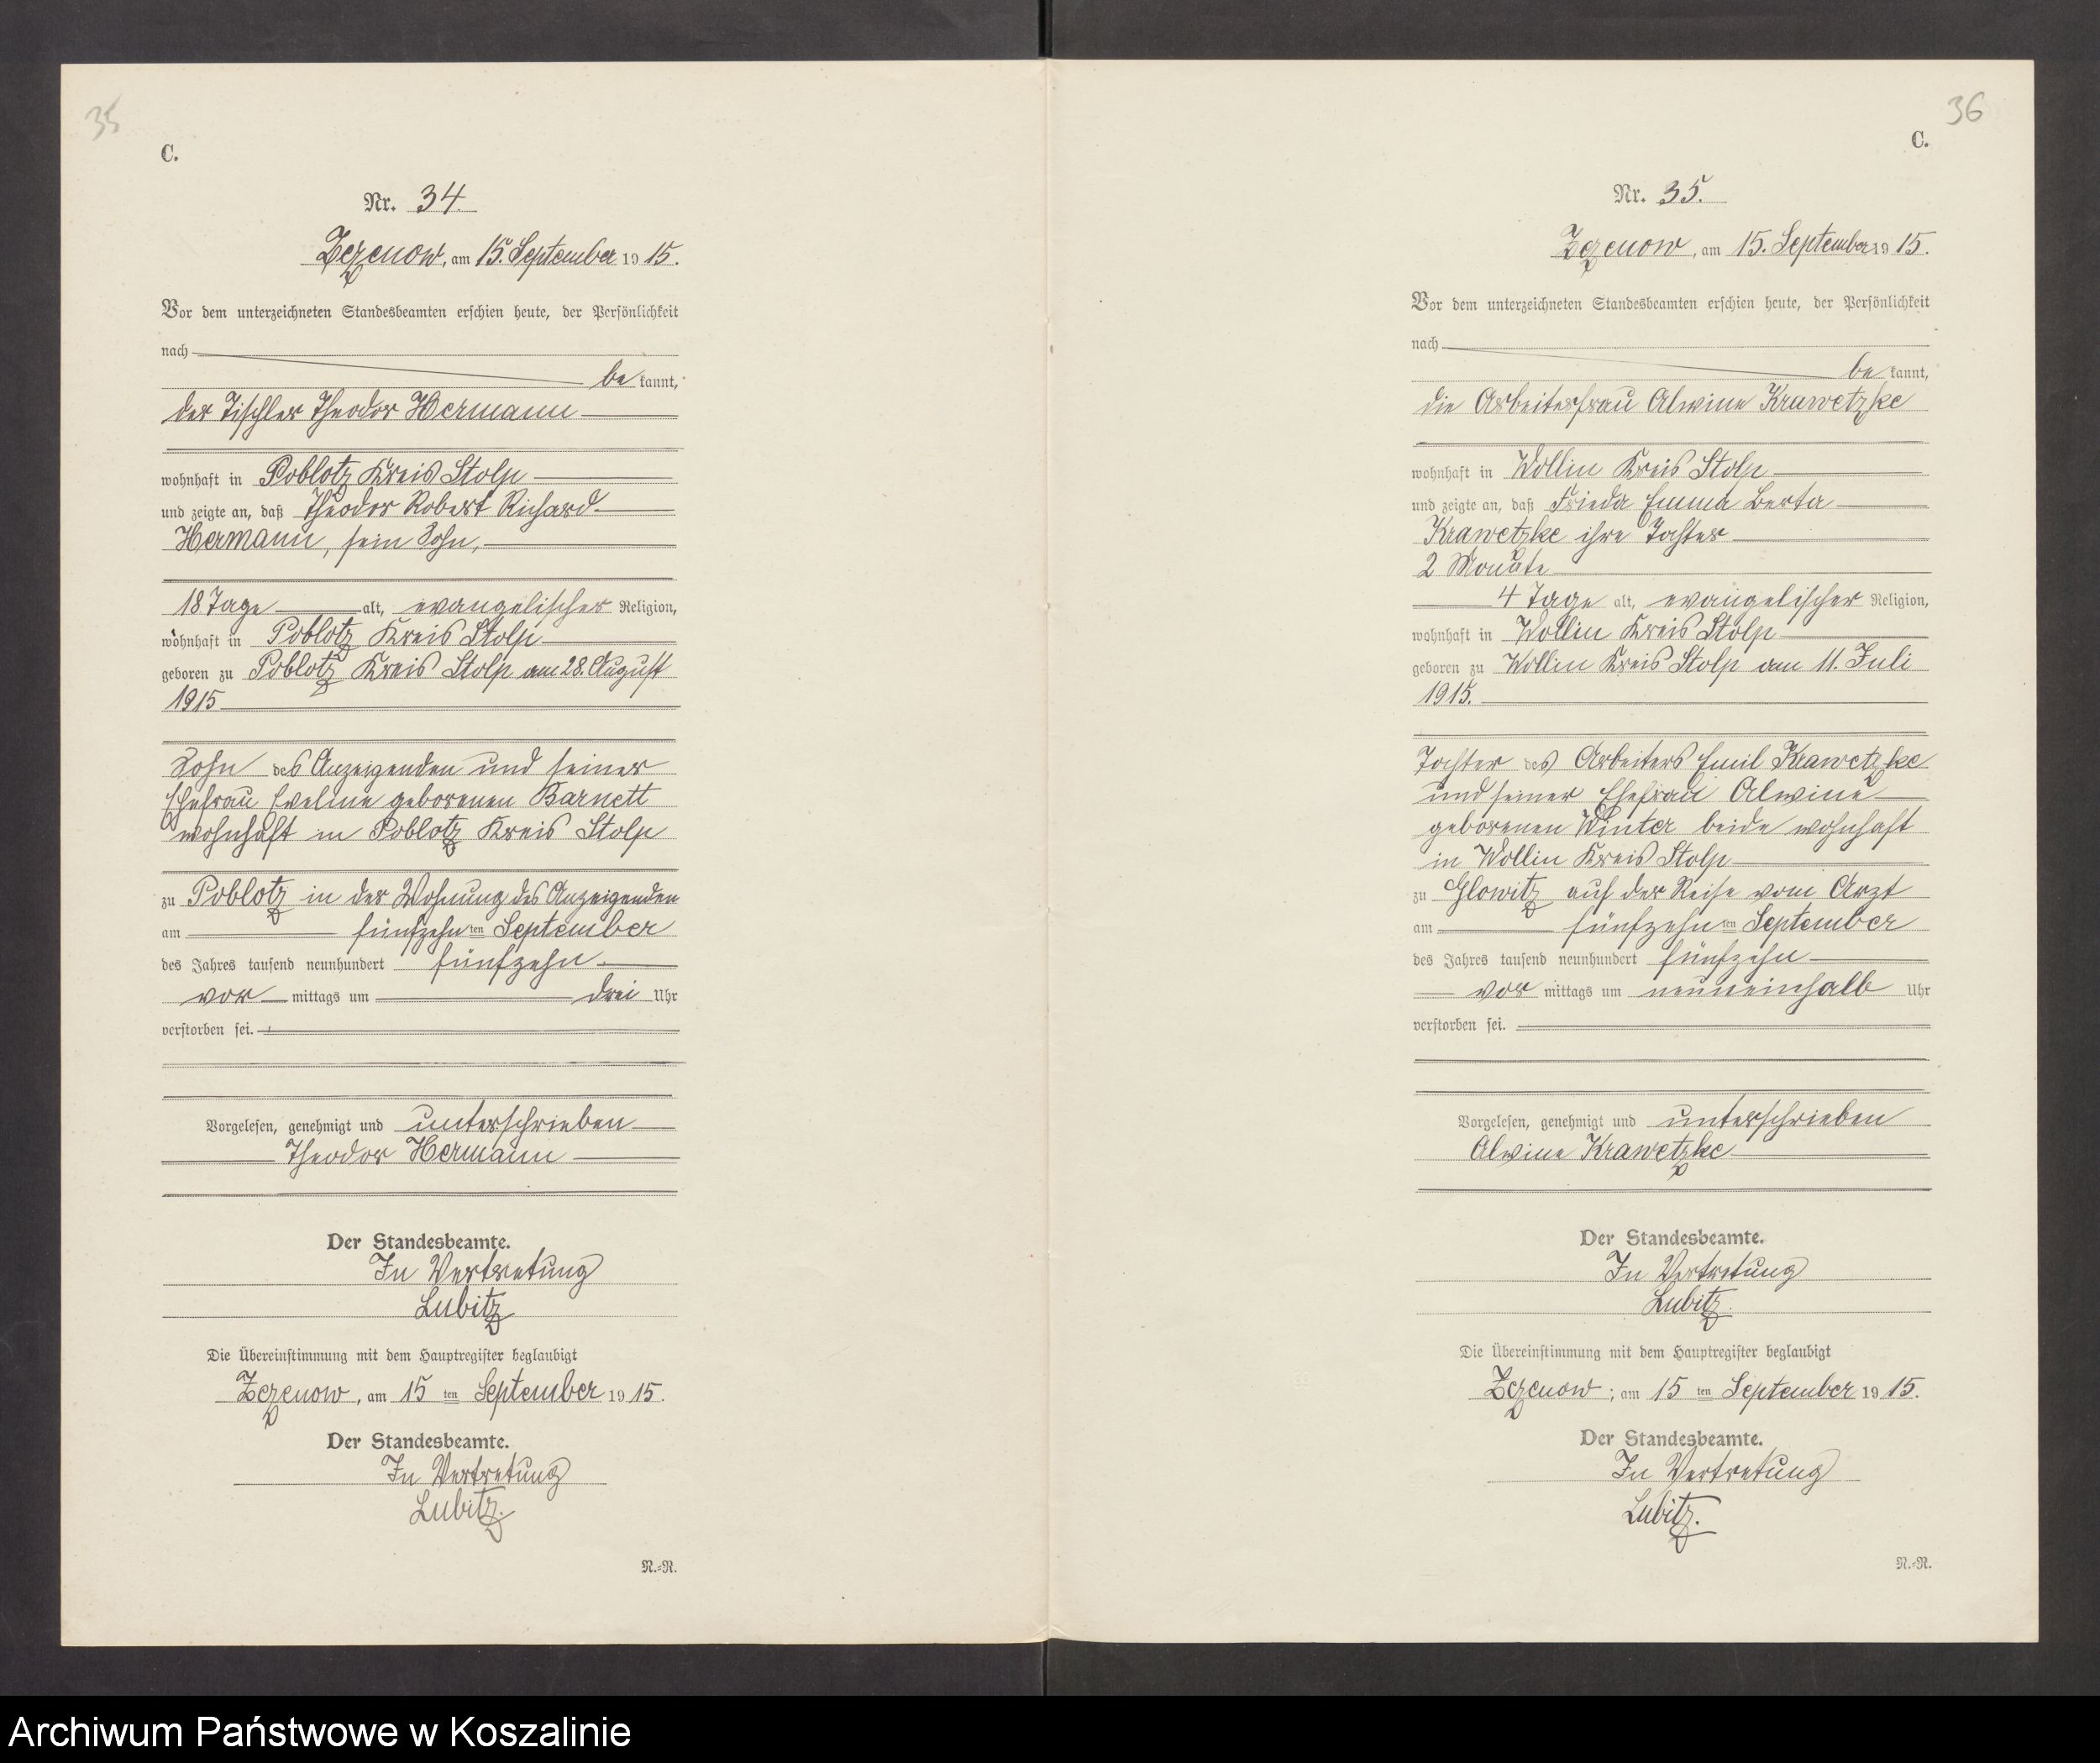 35
C.
Nr. 34.
Zezenow, am 15. September 1915.
Vor dem unterzeichneten Standesbeamten erschien heute, der Persönlichkeit
nach
be kannt,
der Tischler Theodor Hermann
wohnhaft in Poblotz Kreis Stolp
und zeigte an, daß Theodor Robert Richard
Hermann, sein Sohn,
18 Tage alt, evangelischer Religion,
wohnhaft in Poblotz Kreis Stolp
geboren zu Poblotz Kreis Stolp am 28. August
1915
Sohn des Anzeigenden und seiner
Ehefrau Eveline geborenen Barnett
wohnhaft in Poblotz Kreis Stolp
zu Poblotz in der Wohnung des Anzeigenden
am fünfzehnten September
des Jahres tausend neunhundert fünfzehn
vor mittags um drei Uhr
verstorben sei.
Vorgelesen, genehmigt und unterschrieben
Theodor Hermann
Der Standesbeamte.
In Vertretung
Lubitz
Die Übereinstimmung mit dem Hauptregister beglaubigt
Zezenow, am 15 ten September 1915.
Der Standesbeamte.
In Vertretung
Lubitz.
N.=R.
36
C.
Nr. 35.
Zezenow, am 15. September 1915.
Vor dem unterzeichneten Standesbeamten erschien heute, der Persönlichkeit
nach
be kannt,
die Arbeiterfrau Alwine Krawetzke
wohnhaft in Wollin Kreis Stolp
und zeigte an, daß Frieda Emma Berta
Krawetzke ihre Tochter
2 Monate
4 Tage alt, evangelischer Religion,
wohnhaft in Wollin Kreis Stolp
geboren zu Wollin Kreis Stolp am 11. Juli
1915.
Tochter des Arbeiters Emil Krawetzke
und seiner Ehefrau Alwine
geborenen Winter beide wohnhaft
in Wollin Kreis Stolp
zu Glowitz auf der Reise vom Arzt
am fünfzehnten September
des Jahres tausend neunhundert fünfzehn
vor mittags um neuneinhalb Uhr
verstorben sei.
Vorgelesen, genehmigt und unterschrieben
Alwine Krawetzke
Der Standesbeamte.
In Vertretung
Lubitz.
Die Übereinstimmung mit dem Hauptregister beglaubigt
Zezenow, am 15 ten September 1915.
Der Standesbeamte.
In Vertretung
Lubitz.
N.=R.
Archiwum Państwowe w Koszalinie